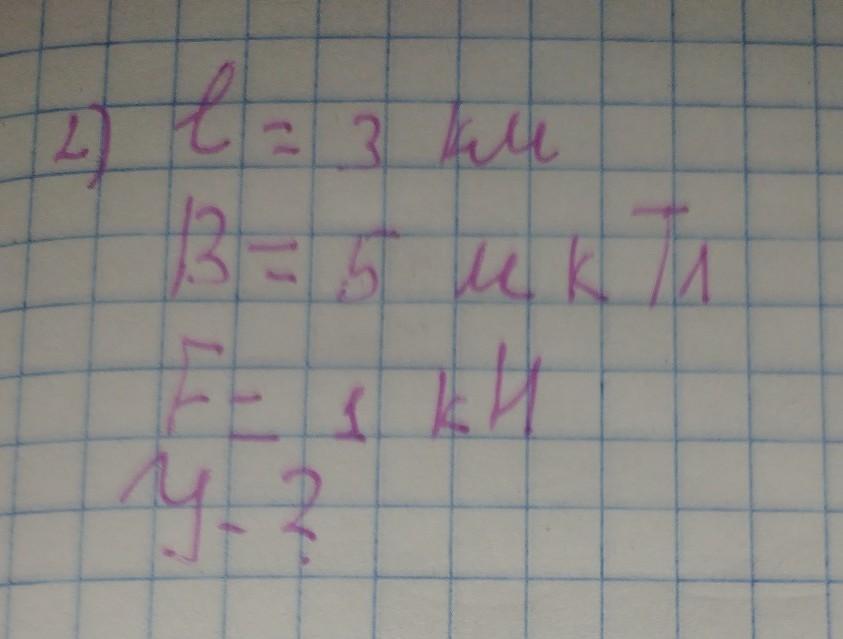 2) l = 3 км
B = 5 мкТл
F = 1 кН
У - ?